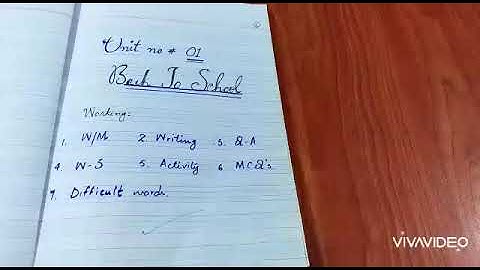 Unit no # 01
Back To School
Working:
1. W/M 2. Writing 3. Q-A
4. W-S 5. Activity 6. MCQ's
7. Difficult words.
VIVAVIDEO